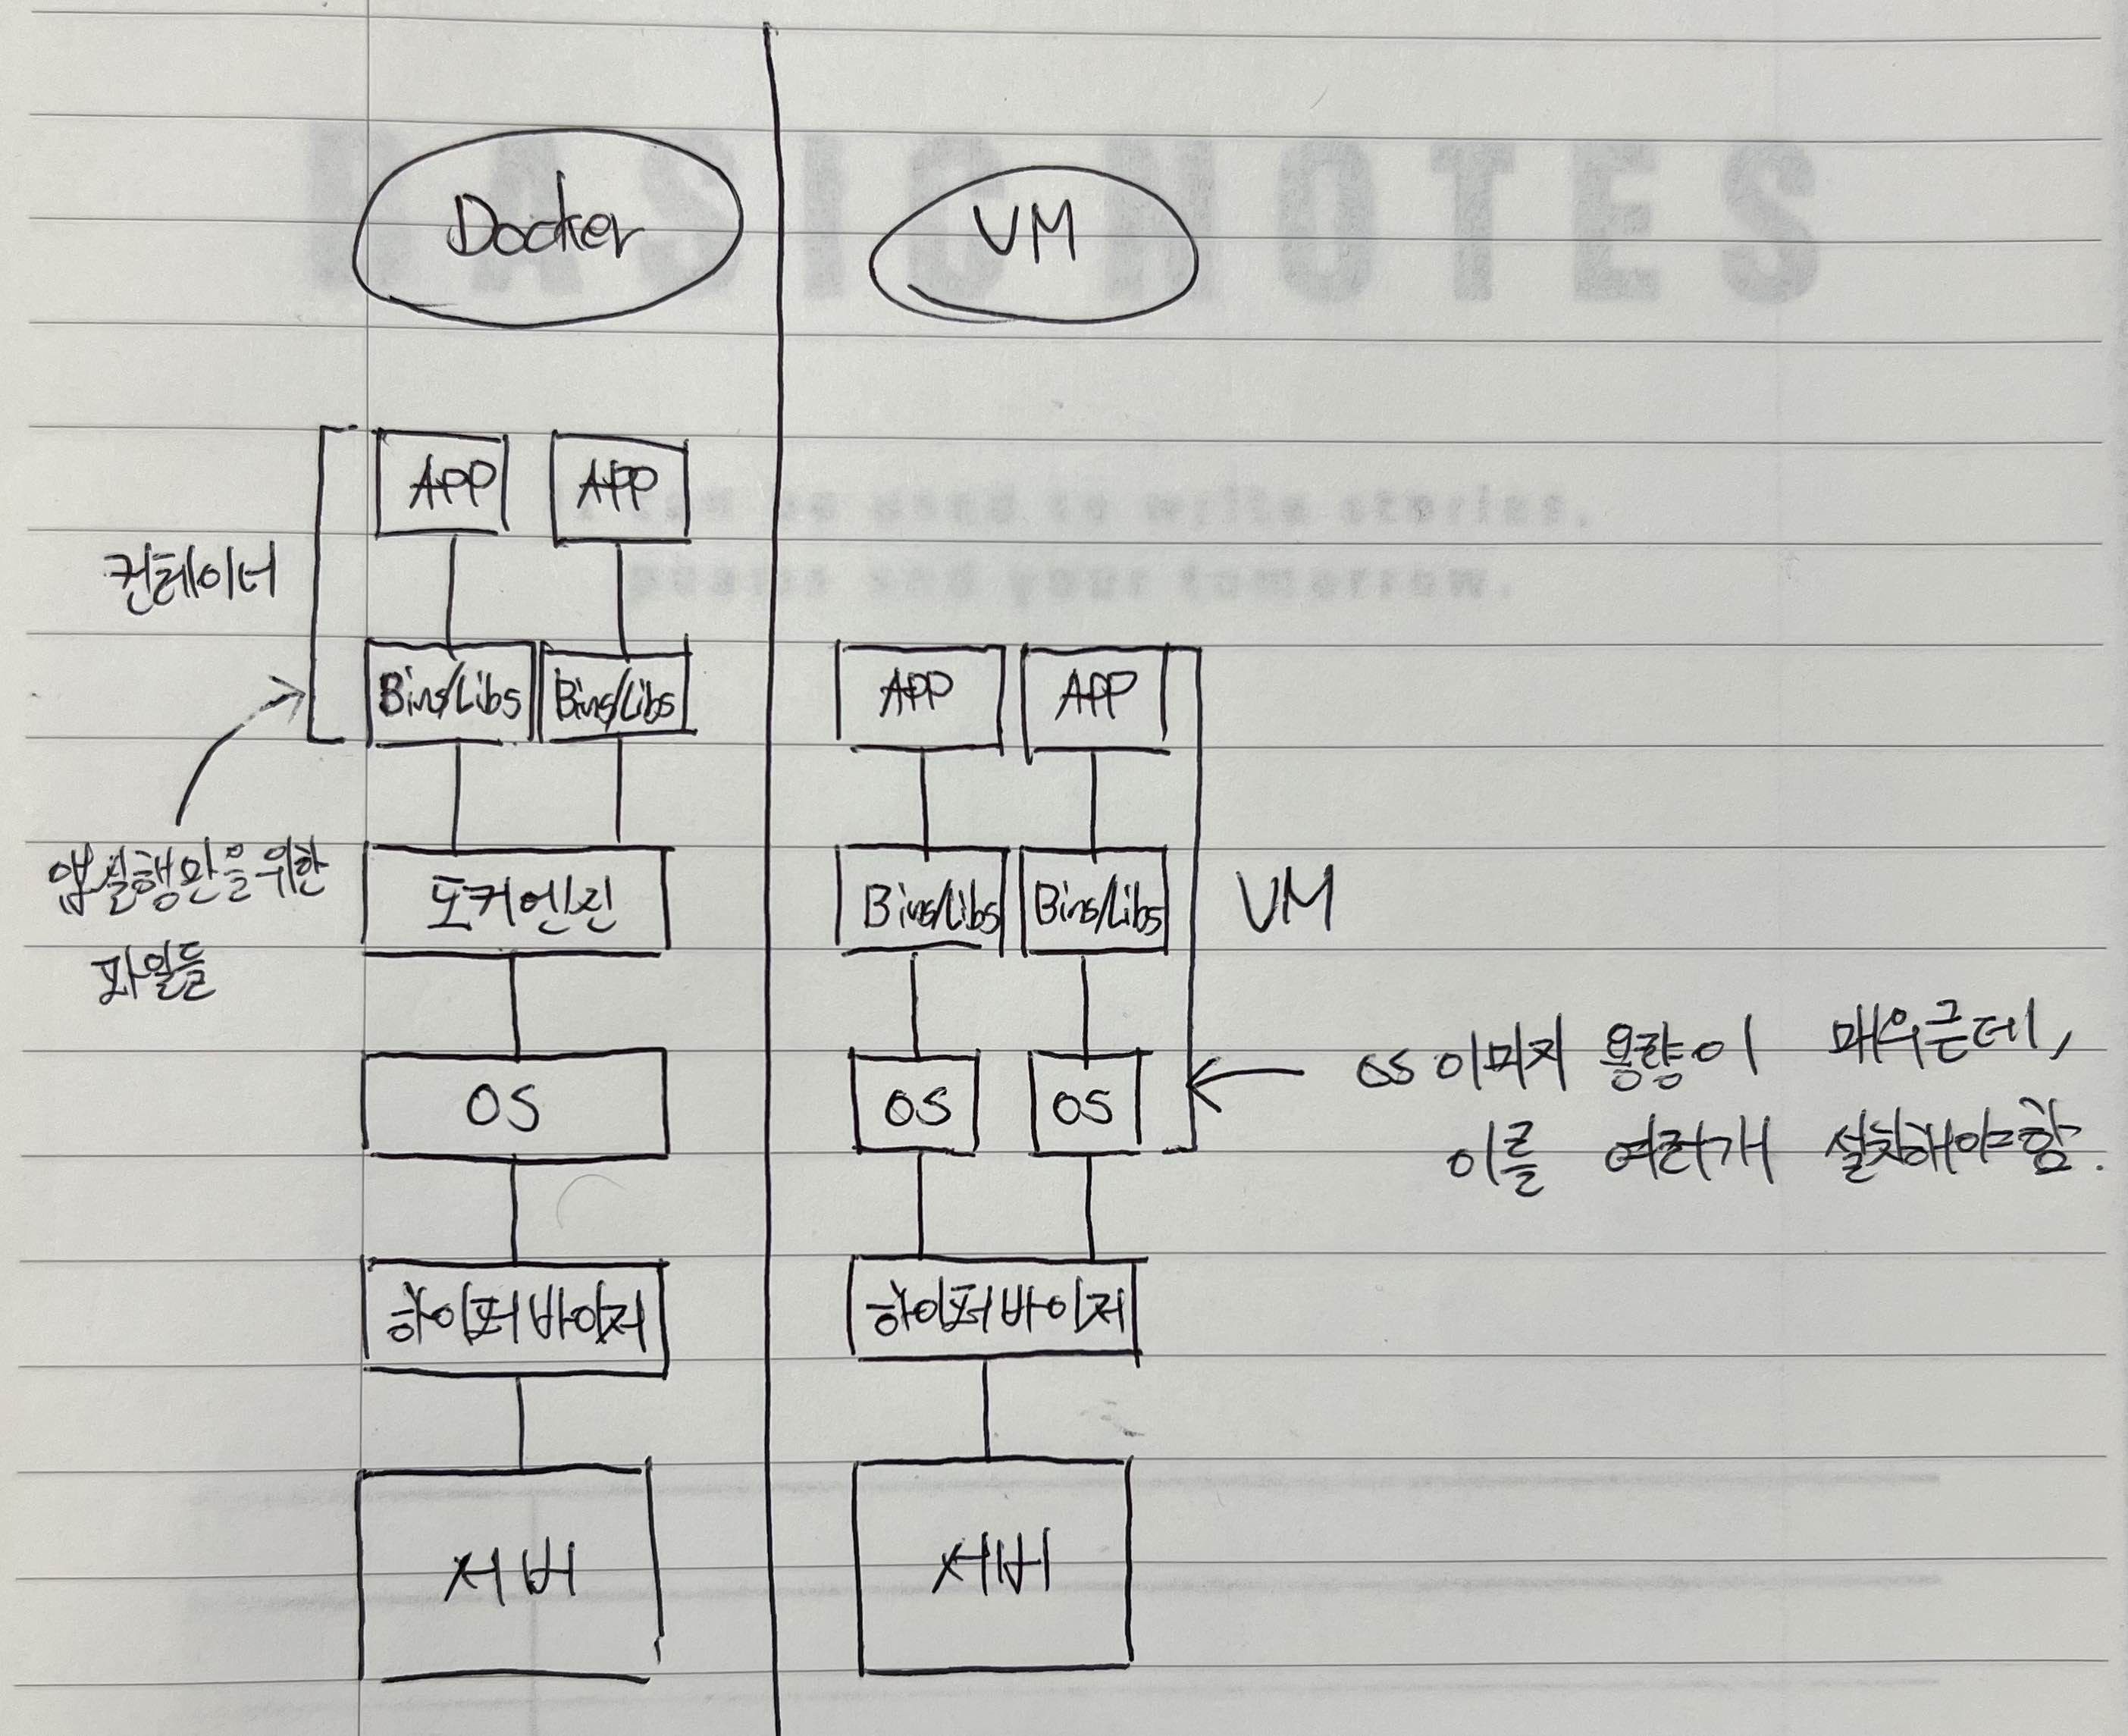 Docker
APP APP
컨테이너
Bins/Libs Bins/Libs
앱실행만을위한
파일들
도커엔진
OS
하이퍼바이저
서버
VM
APP APP
Bins/Libs Bins/Libs
VM
OS OS
OS이미지 용량이 매우큰데,
이를 여러개 설치해야함.
하이퍼바이저
서버
BASIC NOTES